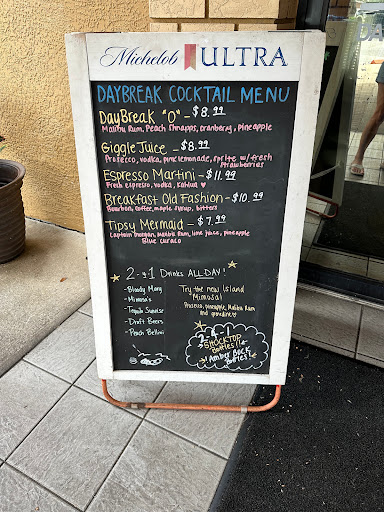 Michelob ULTRA
DAYBREAK COCKTAIL MENU
DayBreak "O" - $8.99
Malibu Rum, Peach Shnapps, cranberry, pineapple
Giggle Juice - $8.99
Prosecco, vodka, pink lemonade, sprite w/ fresh
strawberries
Espresso Martini - $11.99
Fresh espresso, vodka, Kahlua ♥
Breakfast Old Fashion - $10.99
Bourbon, coffee, maple syrup, bitters
Tipsy Mermaid - $7.99
Captain Morgan, Malibu Rum, lime juice, pineapple
Blue curaco
2-4-1 Drinks ALL DAY!
- Bloody Mary
- Mimosa's
- Tequila Sunrise
- Draft Beers
- Peach Bellini
Try the new Island
"Mimosa!"
Prosecco, pineapple, Malibu Rum
and grenadine
2-4-1
SHOCKTOP
Bottles!!
Amber BOCK
Bottles!